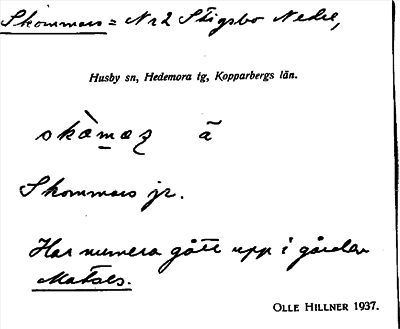 Skommars = Nr 2 Stigsbo Nedre,
Husby sn, Hedemora tg, Kopparbergs län.
skὰmaʒ ã
Skommars jr.
Har numera gått upp i gården
Matsols.
OLLE HILLNER 1937.